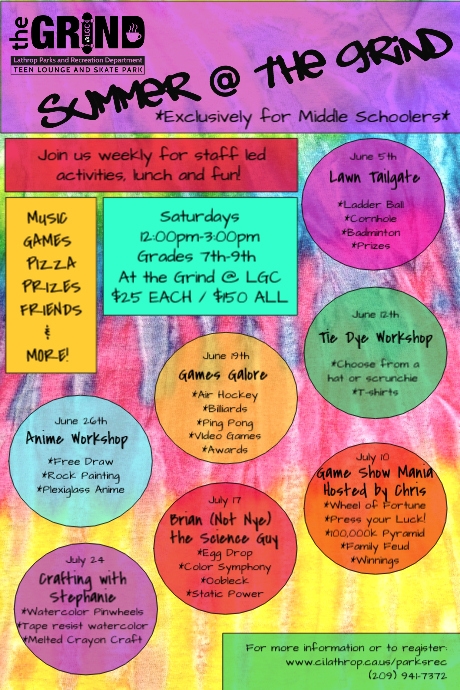 the GRIND
LGC
Lathrop Parks and Recreation Department
TEEN LOUNGE AND SKATE PARK
SUMMER @ THE GRIND
*Exclusively for Middle Schoolers*
Join us weekly for staff led
activities, lunch and fun!
MUSIC
GAMES
PIZZA
PRIZES
FRIENDS
&
MORE!
Saturdays
12:00pm-3:00pm
Grades 7th-9th
At the Grind @ LGC
$25 EACH / $150 ALL
June 5th
Lawn Tailgate
*Ladder Ball
*Cornhole
*Badminton
*Prizes
June 12th
Tie Dye Workshop
*Choose from a
hat or scrunchie
*T-shirts
June 19th
Games Galore
*Air Hockey
*Billiards
*Ping Pong
*Video Games
*Awards
June 26th
Anime Workshop
*Free Draw
*Rock Painting
*Plexiglass Anime
July 10
Game Show Mania
Hosted by Chris
*Wheel of Fortune
*Press your Luck!
*100,000k Pyramid
*Family Feud
*Winnings
July 17
Brian (Not Nye)
the Science Guy
*Egg Drop
*Color Symphony
*Oobleck
*Static Power
July 24
Crafting with
Stephanie
*Watercolor Pinwheels
*Tape resist watercolor
*Melted Crayon Craft
For more information or to register:
www.ci.lathrop.ca.us/parksrec
(209) 941-7372